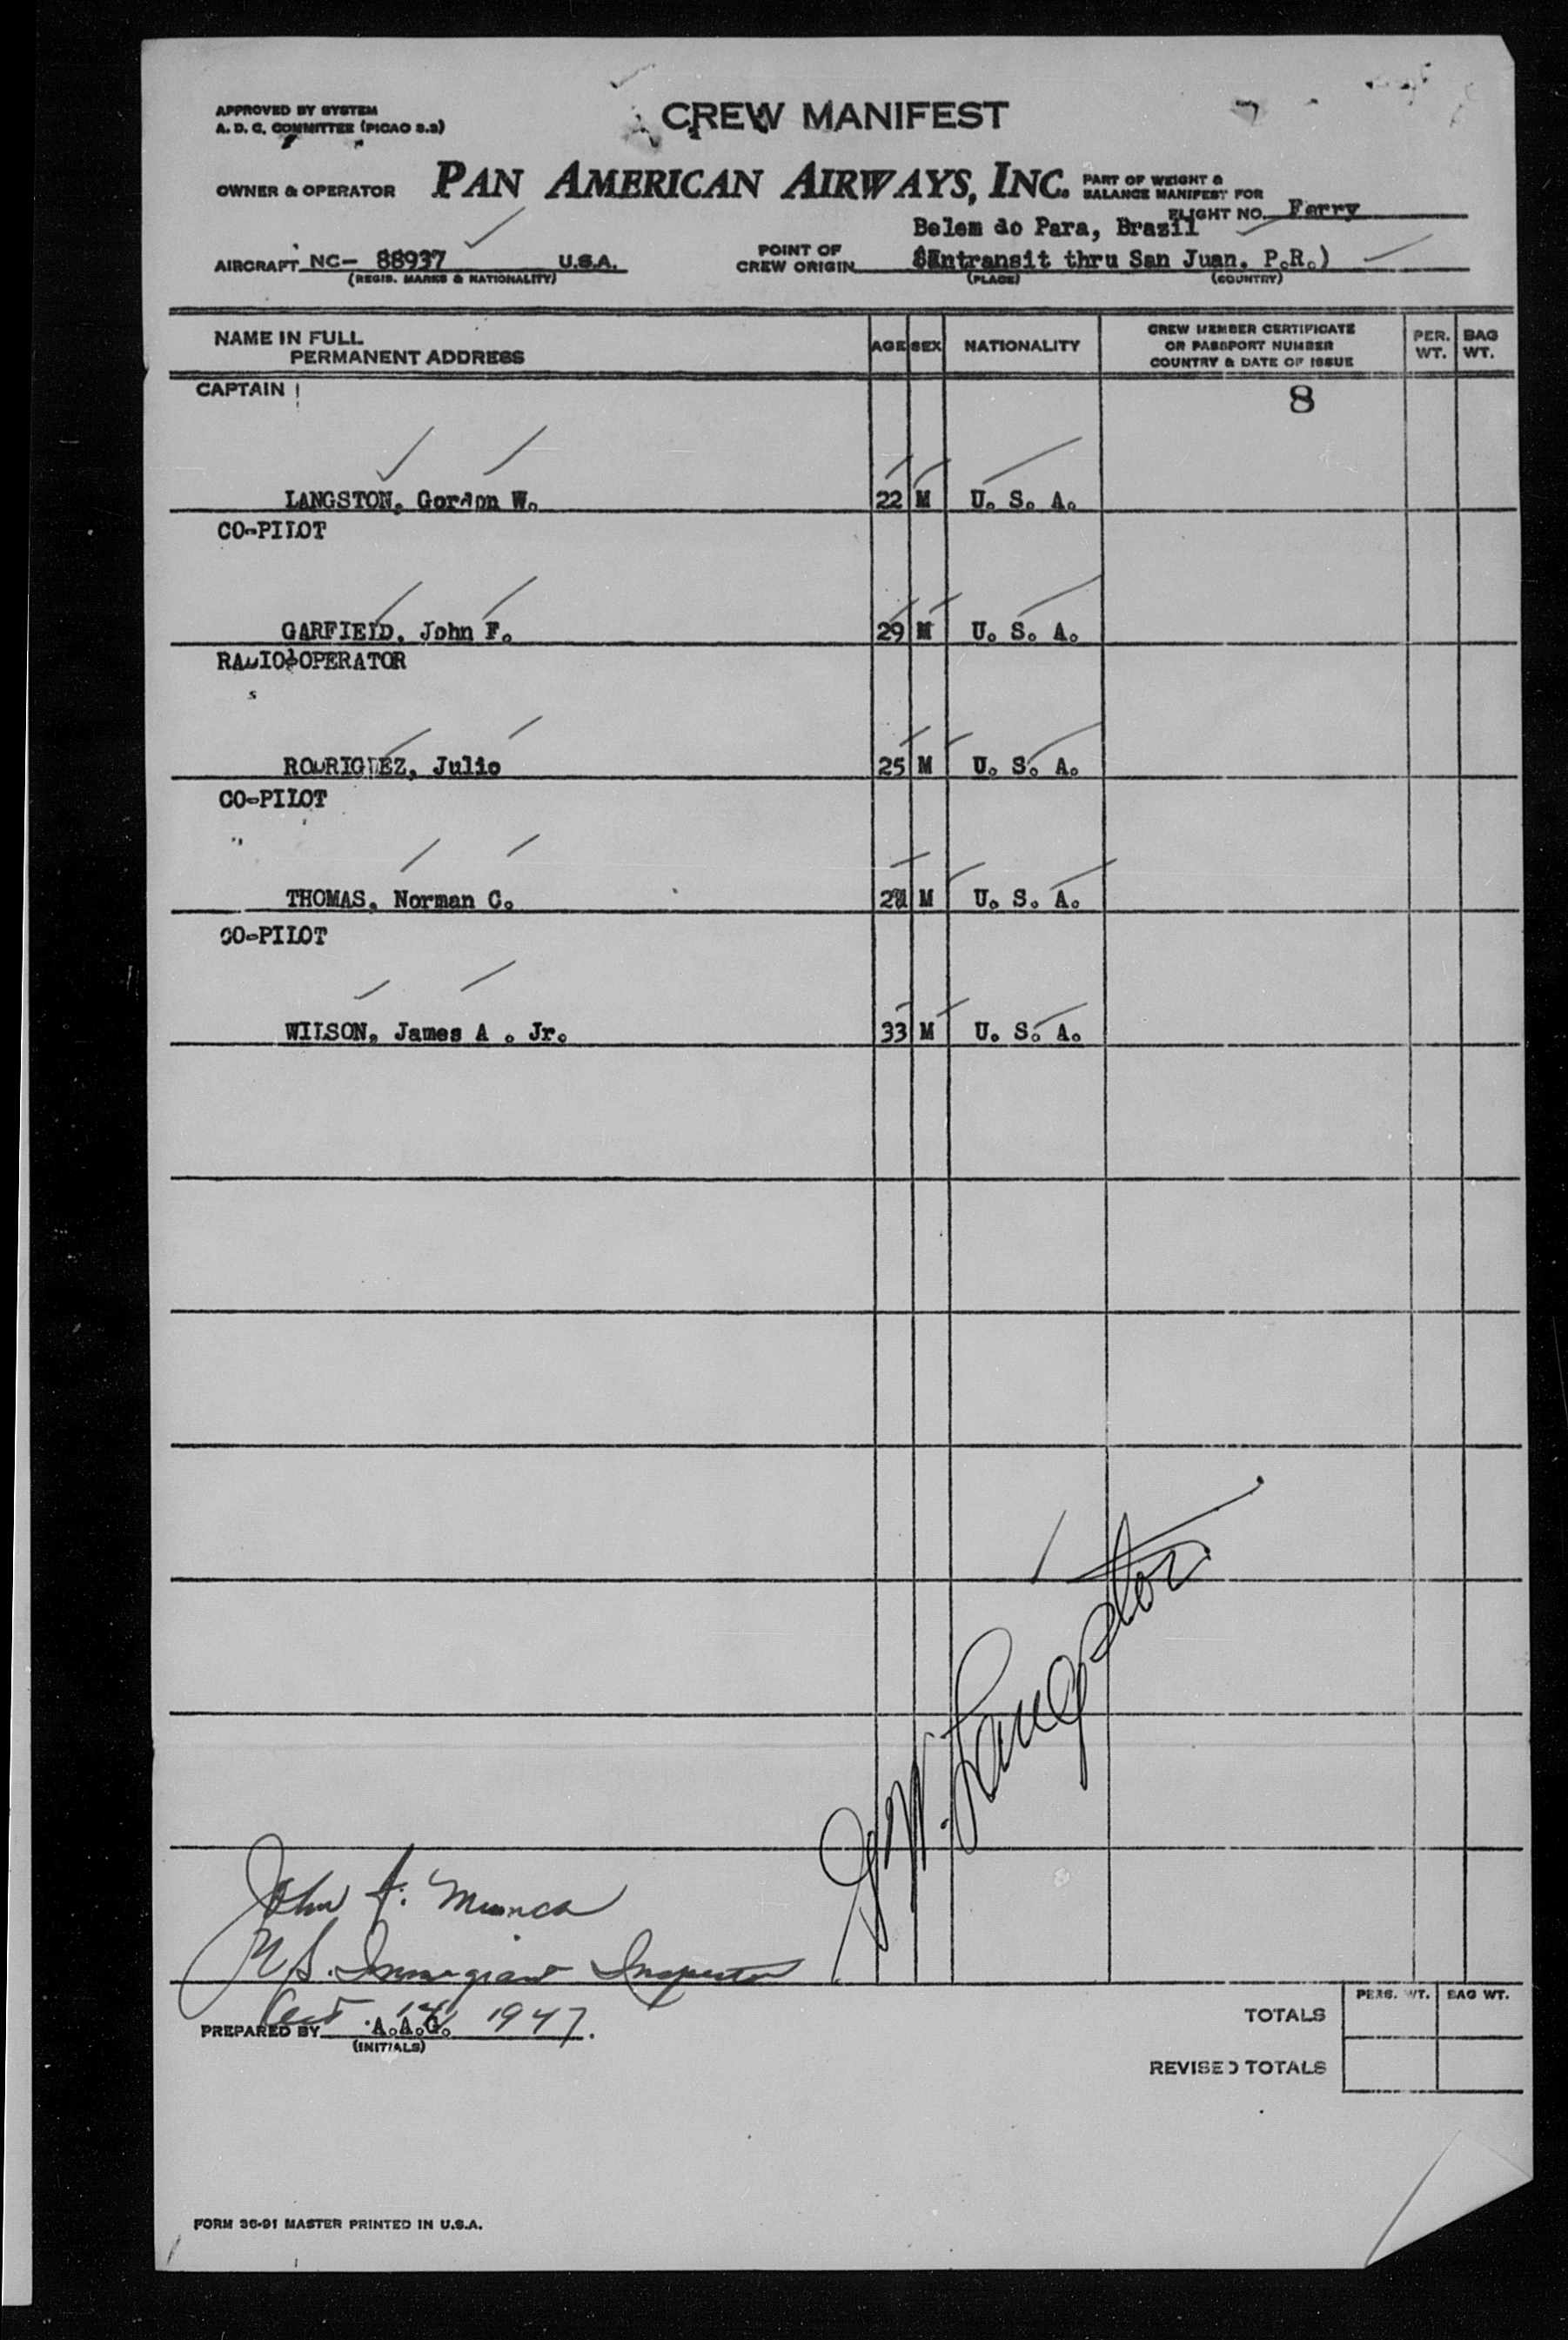 APPROVED BY SYSTEM
A. D. C. COMMITTEE (PICAO 2.2)
CREW MANIFEST
OWNER & OPERATOR PAN AMERICAN AIRWAYS, INC. PART OF WEIGHT &
BALANCE MANIFEST FOR
FLIGHT NO. Ferry
Belem do Para, Brazil
AIRCRAFT NC- 88937 U.S.A. POINT OF
CREW ORIGIN (Intransit thru San Juan. P.R.)
(REGIS. MARKS & NATIONALITY) (PLACE) (COUNTRY)
NAME IN FULL
PERMANENT ADDRESS AGE SEX NATIONALITY CREW MEMBER CERTIFICATE
OR PASSPORT NUMBER
COUNTRY & DATE OF ISSUE PER.
WT. BAG
WT.
CAPTAIN
8
LANGSTON, Gordon W. 22 M U. S. A.
CO-PILOT
GARFIELD, John F. 29 M U. S. A.
RADIO OPERATOR
RODRIGUEZ, Julio 25 M U. S. A.
CO-PILOT
THOMAS, Norman C. M U. S. A.
CO-PILOT
WILSON, James A . Jr. 33 M U. S. A.
G.W. Langston
John F.
U.S. Immigrant Inspector
Oct 14 1947.
PREPARED BY A.A.G.
(INITIALS)
PERS. WT. BAG WT.
TOTALS
REVISED TOTALS
FORM 36-91 MASTER PRINTED IN U.S.A.